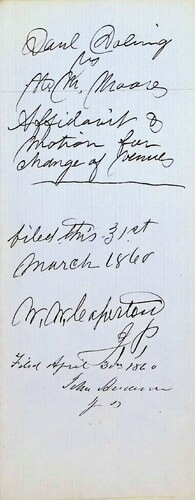 Paul Doling
vs
H. M. Moores
Affidavit &
Motion for
change of Venue
filed this 31st
March 1860
W. W. Caperton
J P
Filed April 3d 1860
John
J P